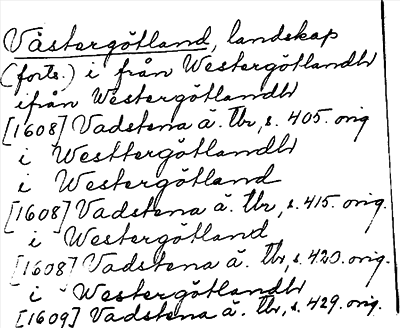 Västergötland, landskap
(forts.) i från Westergötlandh
ifrån Westergötlandh
[1608] Vadstena ä. Tb, s. 405. orig
i Westtergötlandh
i Westergötland
[1608] Vadstena ä. Tb, s. 415. orig.
i Westergötland
[1608] Vadstena ä. Tb, s. 420. orig.
i Westergötlandh
[1609] Vadstena ä. Tb, s. 429. orig.